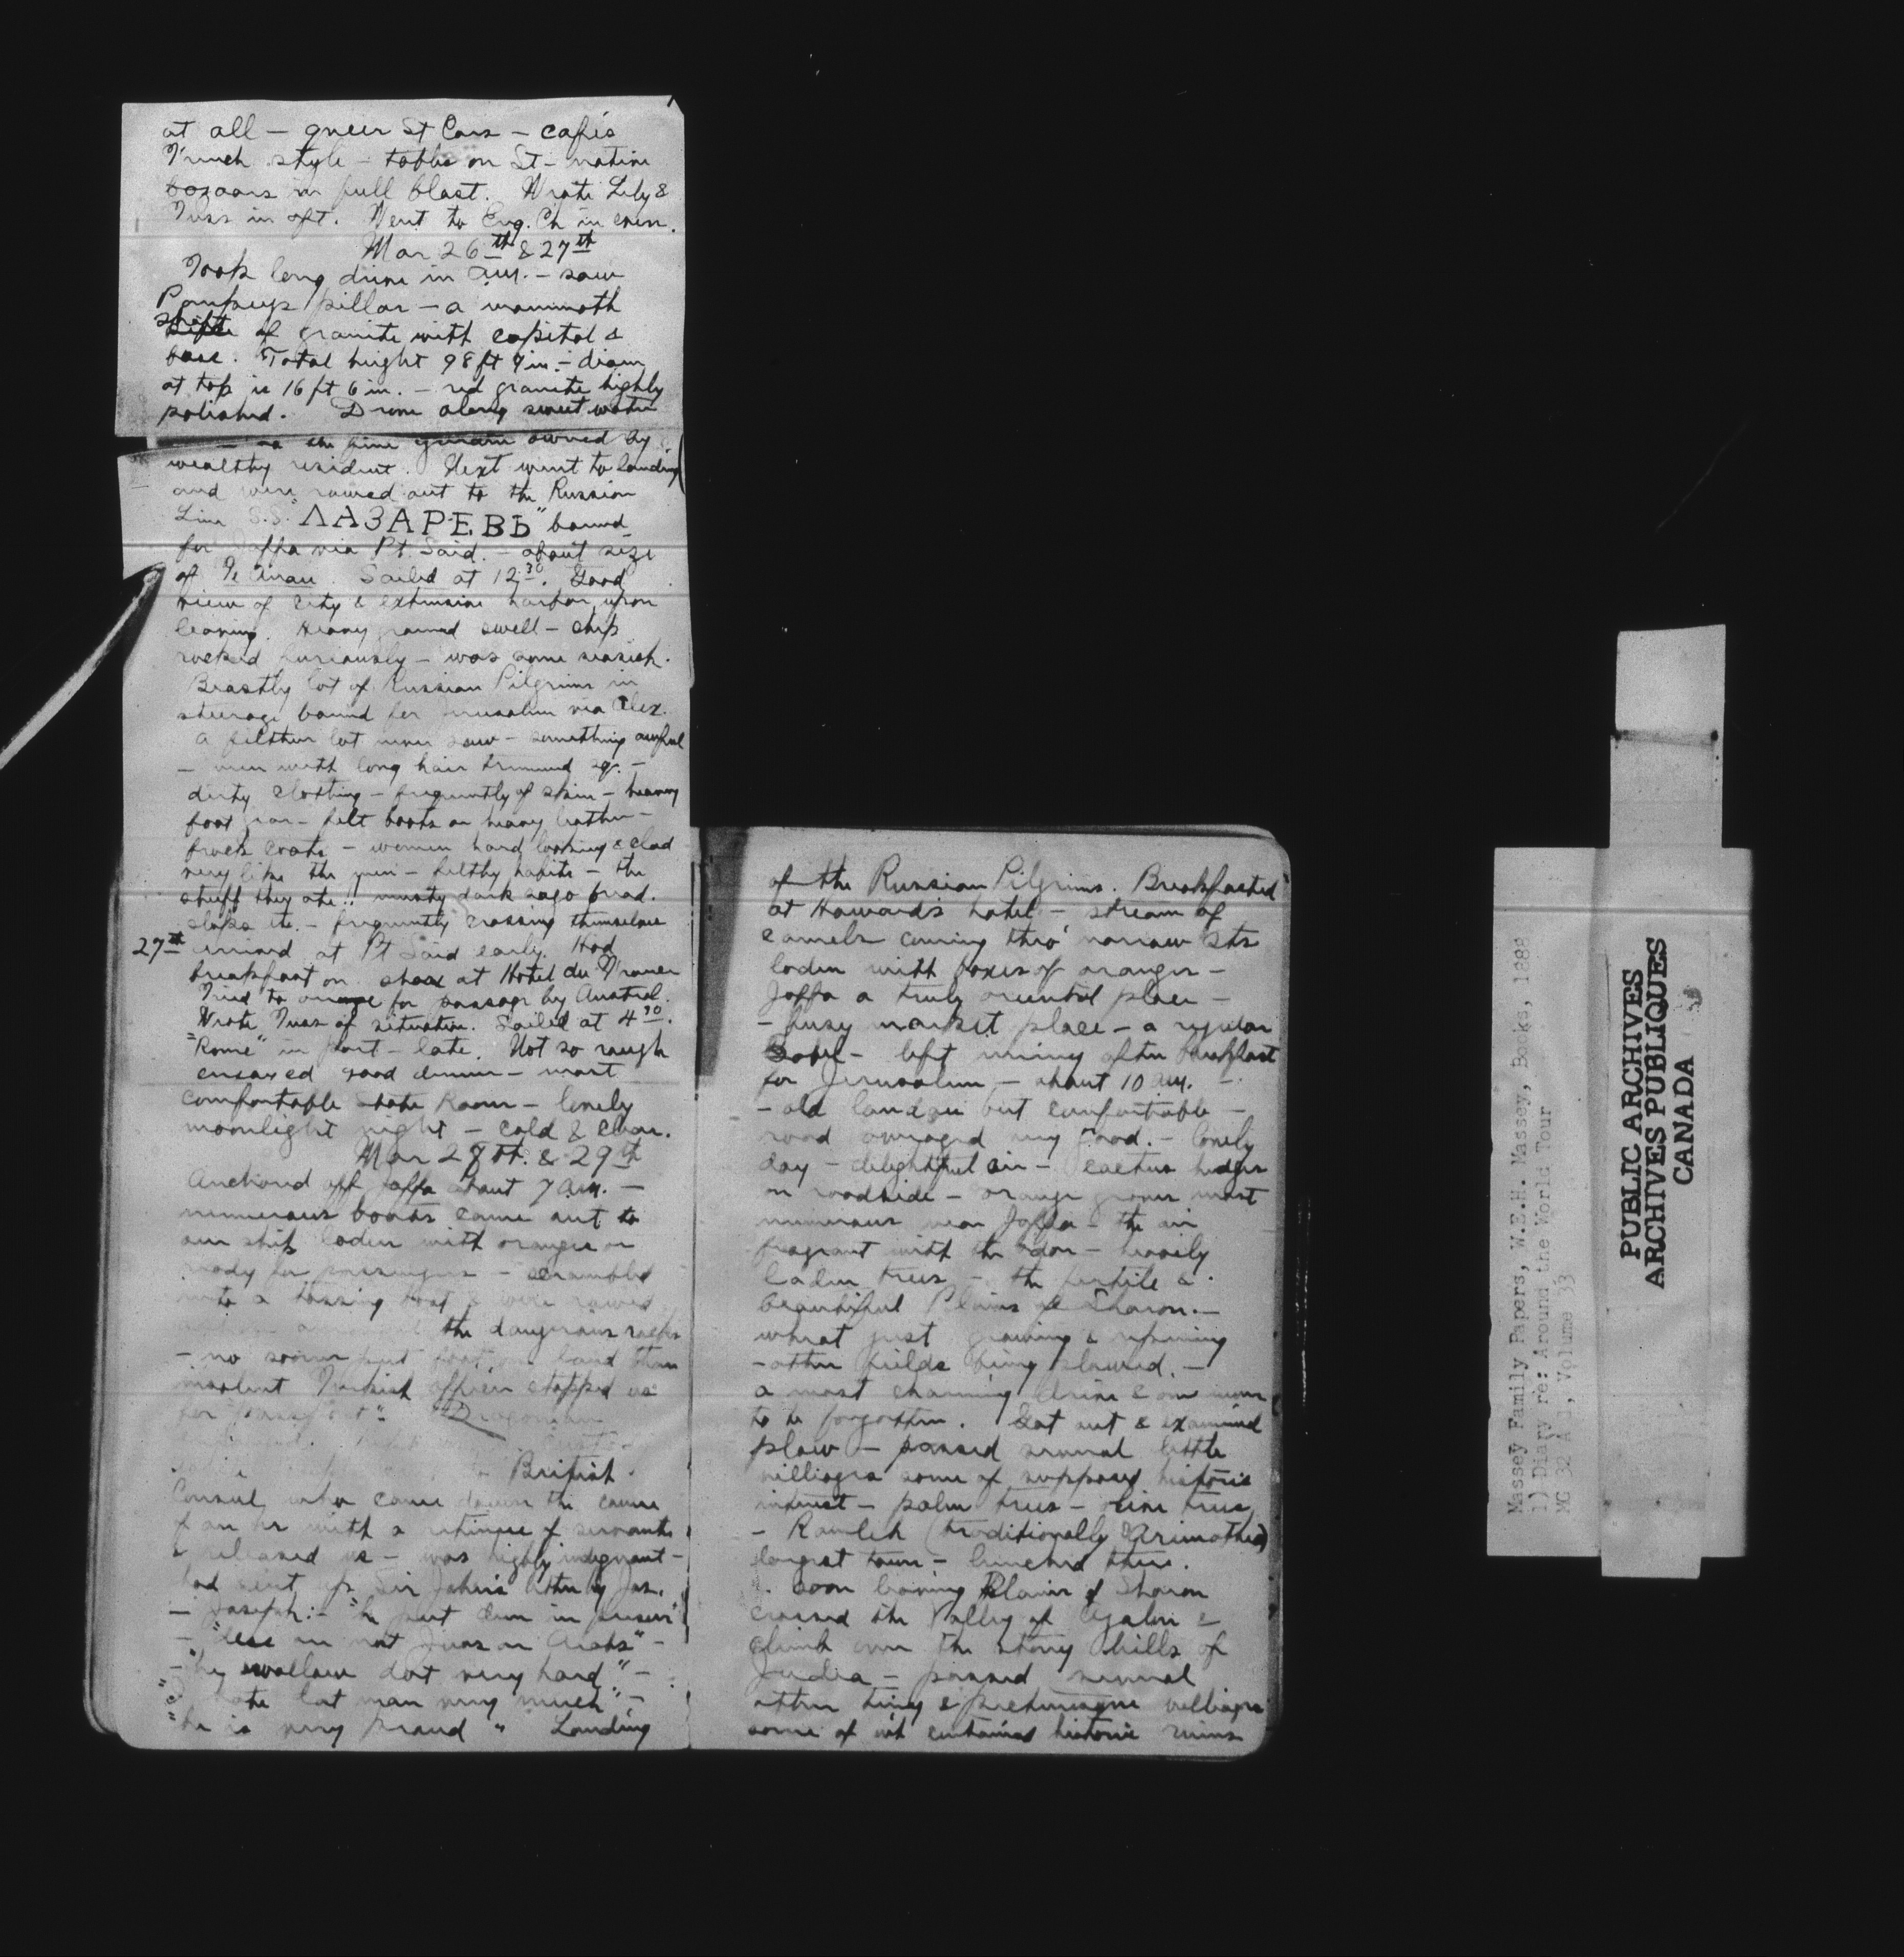 at all – queer St Cars – cafés
French style – tables on St – native
bozaars in full blast. Wrote Lily &
Tuss in aft. Went to Eng. Ch in even.
Mar 26th & 27th
Took long drive in a.m. – saw
Pompeys pillar – a mammoth
shaft of granite with capital &
base. Total height 98 ft 9 in. – diam
at top is 16 ft 6 in. – red granite highly
polished. Drove along sweet water
fine owned by
wealthy resident. Next went to landing
and were rowed out to the Russian
Line S.S. "ЛАЗАРЕВЬ" bound
for Jaffa via Pt. Said. – about size
of Sailed at 12.30. Good
view of city & extensive harbor upon
leaving. Heavy ground swell – ship
rocked furiously – was some seasick.
Beastly lot of Russian Pilgrims in
steerage bound for Jerusalem via Alex.
a filthier lot never saw – something awful
– men with long hair trimmed sq. –
dirty clothing – frequently of skin – heavy
foot gear – felt boots or heavy leather –
frock coats – women hard looking & clad
very like the men – filthy habits – the
stuff they ate!! musty dark sago bread.
slops etc. – frequently crossing themselves
27th arrived at Pt Said early. Had
breakfast on shore at Hotel du France
Tried to arrange for passage by Austral.
Wrote Tuss of situation. Sailed at 4 30.
"Rome" in port – late. Not so rough
enjoyed good dinner – most
comfortable State Room – lovely
moonlight night – cold & clear.
Mar 28th. & 29th
Anchored off Jaffa about 7 a.m. –
numerous boats came out to
our ship laden with oranges or
ready for passengers – scrambled
into a tossing boat & were rowed
the dangerous rocks
– no sooner put foot on land than
insolent Turkish officer stopped us
for "passport". Dragoman
British
Consul who came down in the course
of an hr with a retinue of servants
& released us – was highly indignant –
had sent up Sir John's letter by Jos.
– Joseph: – "he put dem in prison"
– "dese are not Jews or Arabs" –
– "he swallow dat very hard" –
hate dat man very much" –
"he is very proud" Landing
of the Russian Pilgrims. Breakfasted
at Howard's hotel – stream of
camels coming thro' narrow Sts
laden with boxes of oranges –
Jaffa a truly oriental place –
– busy market place – a regular
Babel – left after breakfast
for Jerusalem – about 10 a.m. –
– old landau but comfortable –
road averaged very good. – lovely
day – delightful air – cactus hedges
on roadside – orange groves most
numerous near Jaffa – the air
fragrant with the odor – heavily
laden trees – the fertile &
beautiful Plains of Sharon. –
wheat just growing & ripening
– other fields being plowed. –
a most charming drive & one never
to be forgotten. Got out & examined
plow – passed several little
villiages some of supposed historic
interest – palm trees – olive trees
– Ramleh (traditionally Arimathea)
largest town – lunched there.
Soon leaving Plains of Sharon
crossed the Valley of Ajalon &
climb over the stony hills of
Judea – passed several
other tiny & picturesque villiages
some of wh contained historic ruins
Massey Family Papers, W.E.H. Massey, Books, 1888
1) Diary re: Around the World Tour
MG 32 A1, Volume 33
PUBLIC ARCHIVES
ARCHIVES PUBLIQUES
CANADA